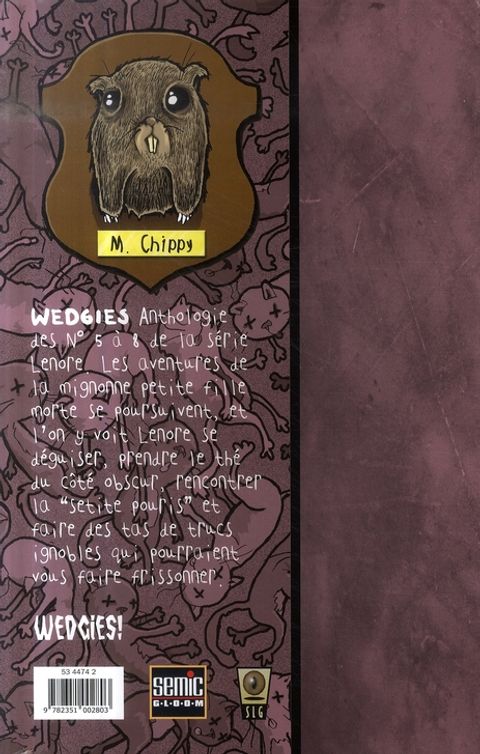 M. Chippy
WEDGIES Anthologie
des N° 5 a 8 de la série
Lenore. Les aventures de
la mignonne petite fille
morte se poursuivent, et
l'on y voit Lenore se
déguiser, prendre le thé
du côté obscur, rencontrer
la "setite pouris" et
faire des tas de trucs
ignobles qui pourraient
vous faire frissonner.
WEDGIES!
53 4474 2
9 782351 002803
SEMIC
GLOOM
SLG